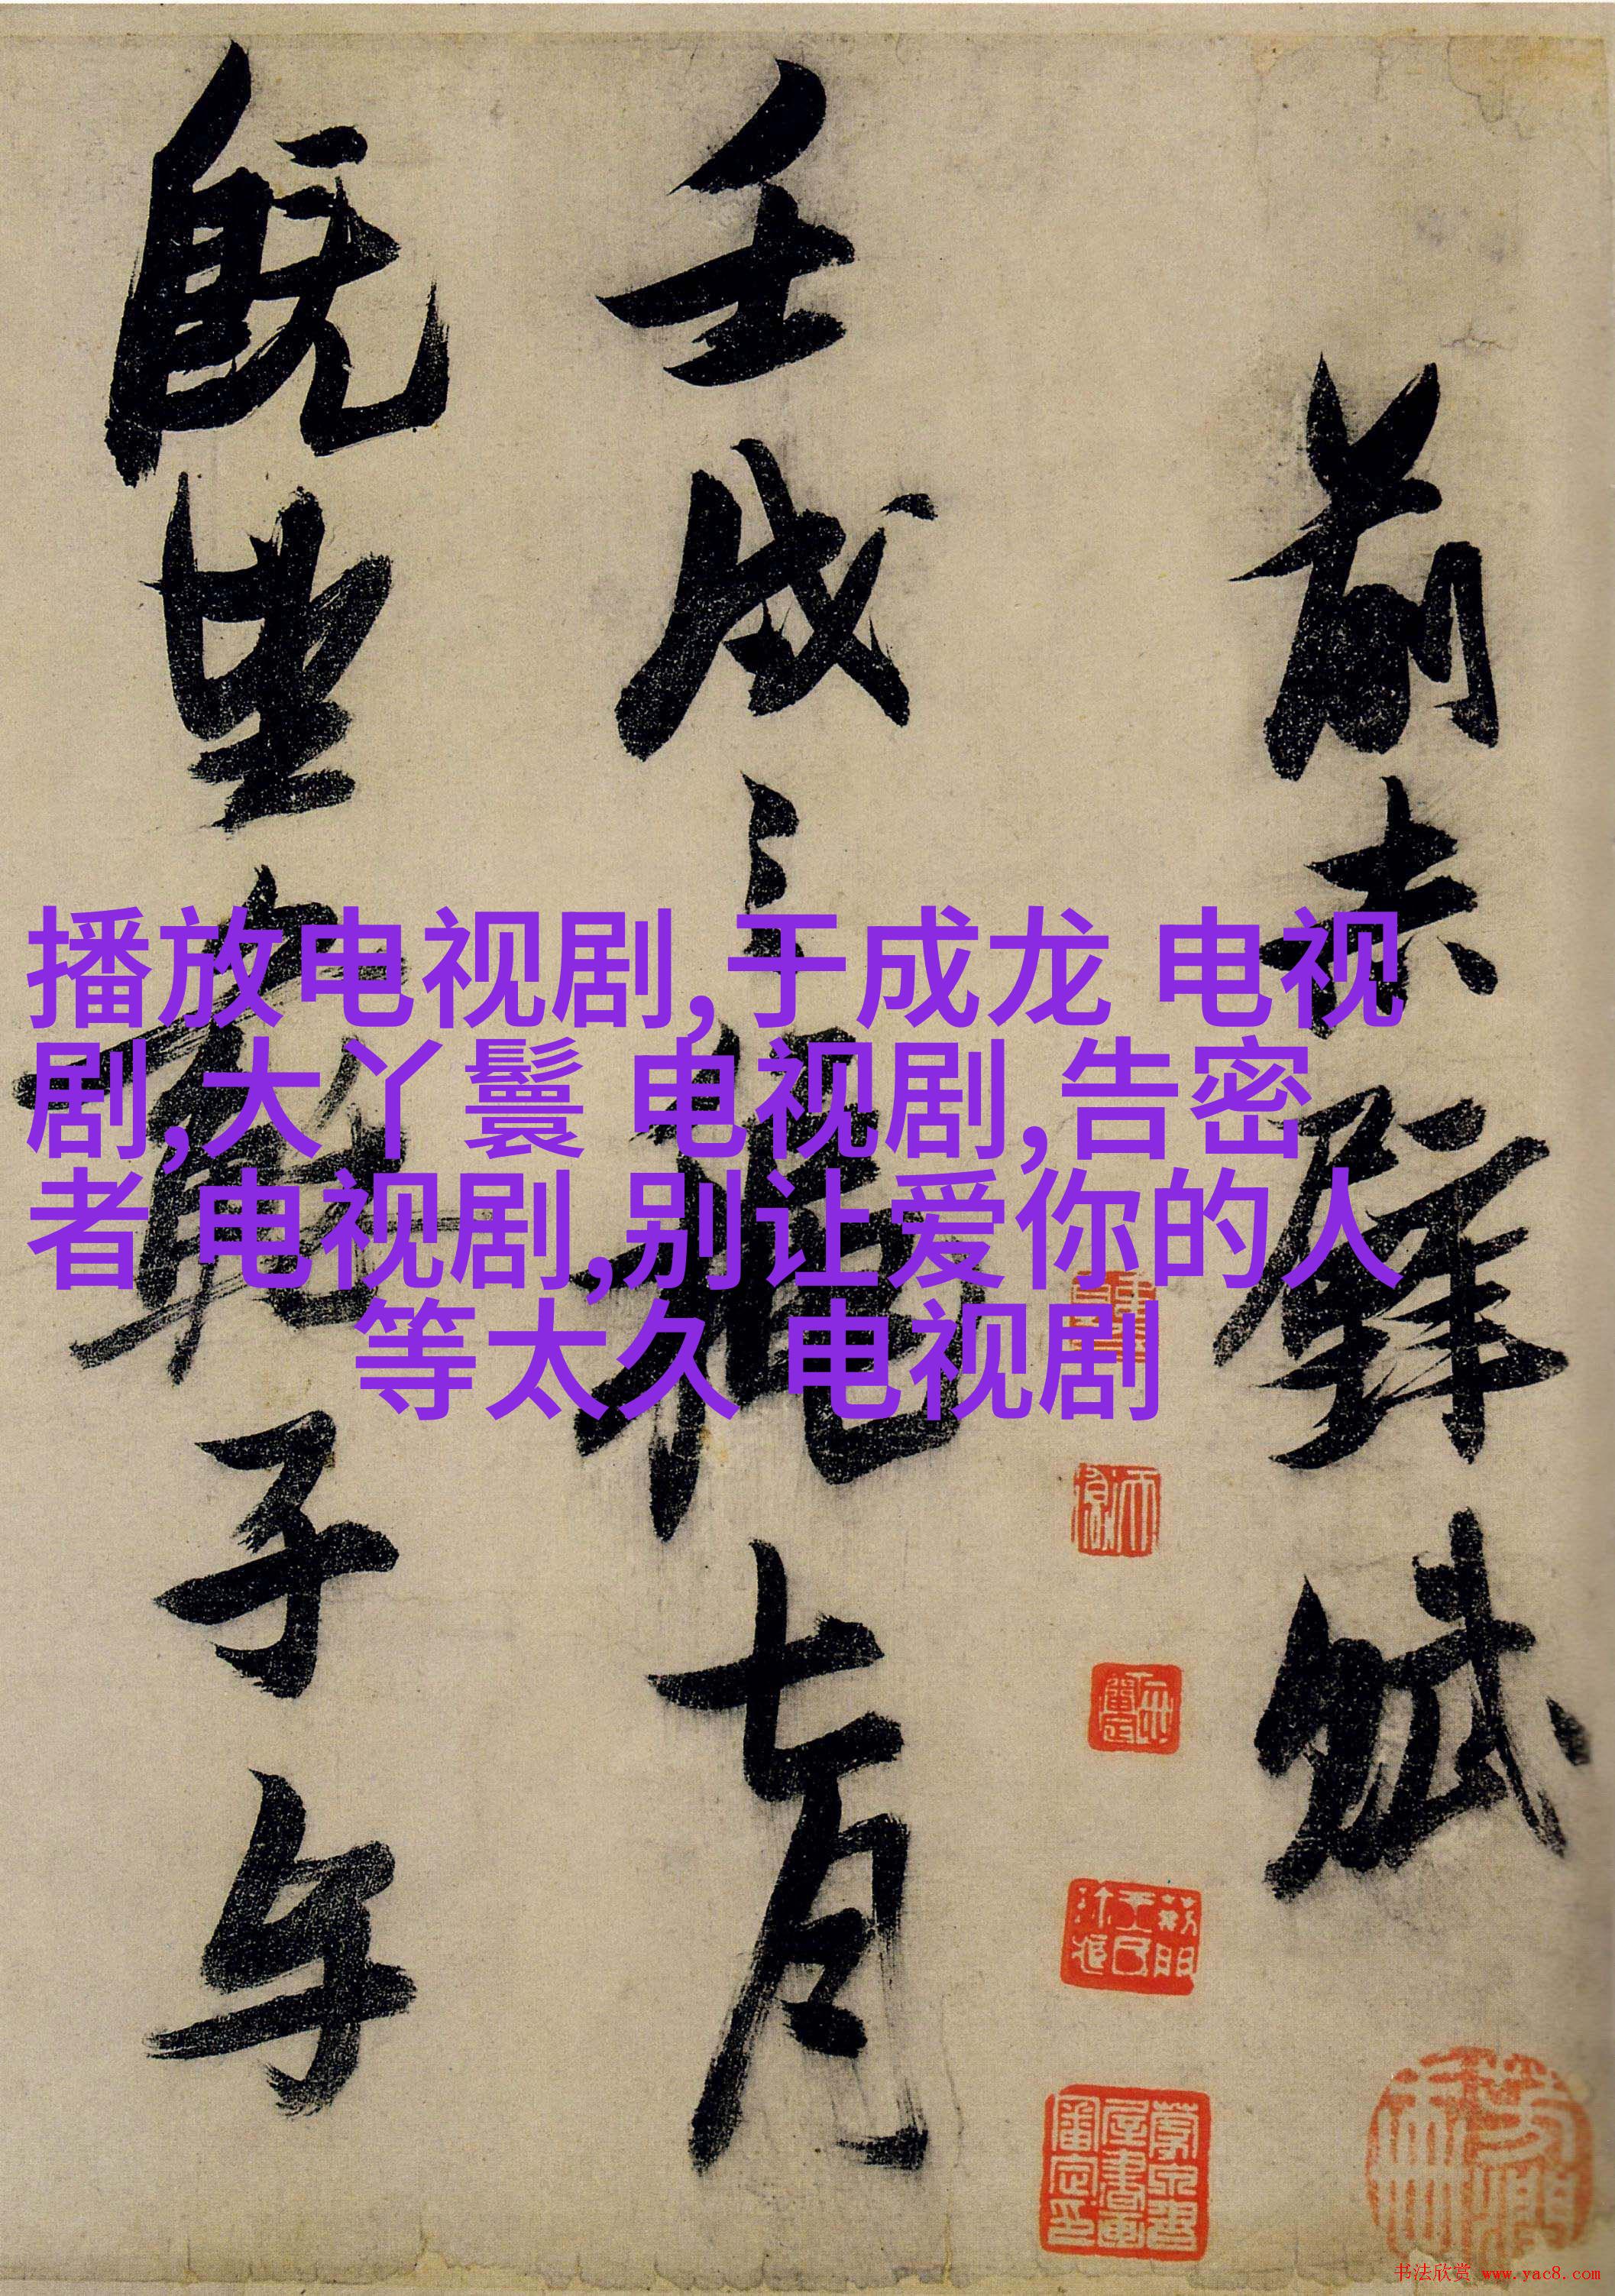 播放电视剧,于成龙 电视
剧,大丫鬟 电视剧,告密
者 电视剧,别让爱你的人
等太久 电视剧
前赤壁賦
壬戌之秋七月
既望蘇子与
书法欣赏 www.yac8.com